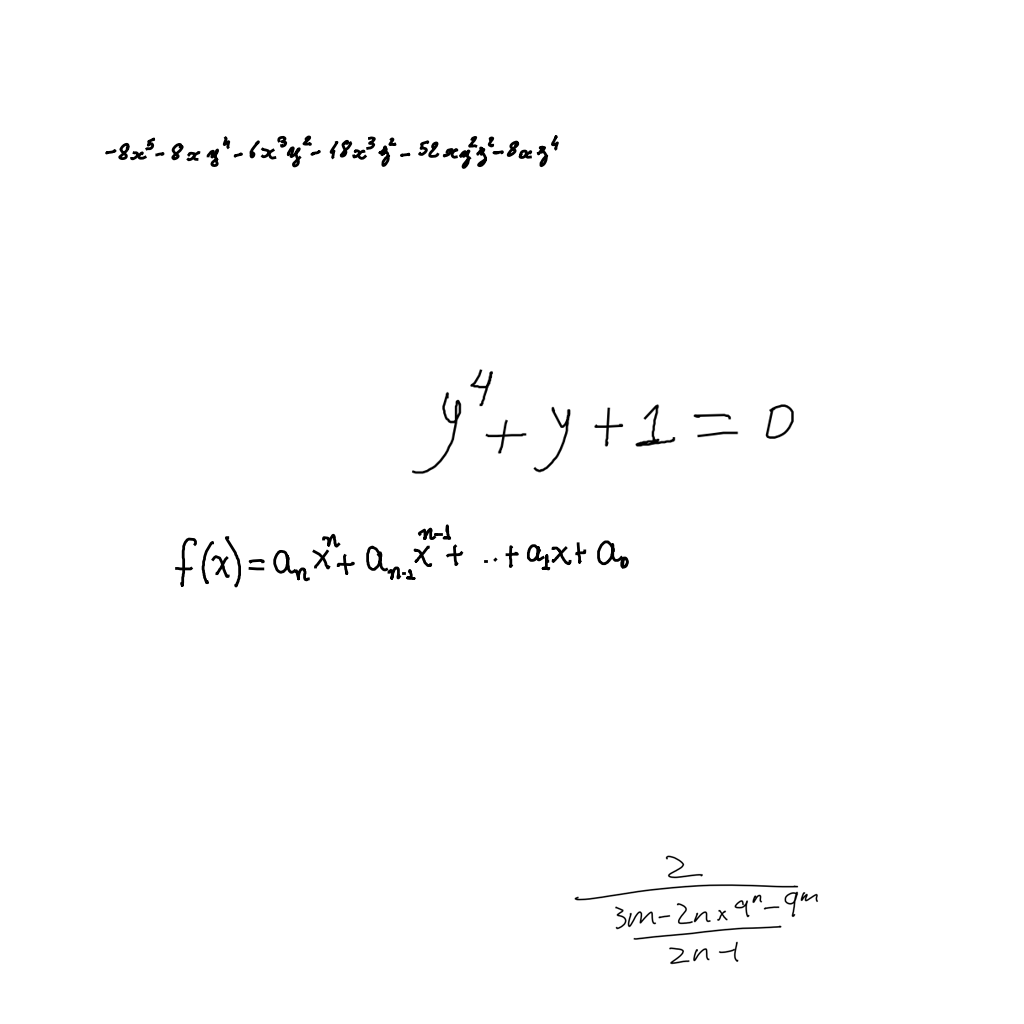 -8x^5-8xy^4-6x^3y^2-18x^3z^2-52xy^2z^2-8xz^4
y^4+y+1=0
f(x)=a_nx^n+a_{n-1}x^{n-1}+..+a_1x+a_0
2
3m-2n×9^n-9^m
2n-1